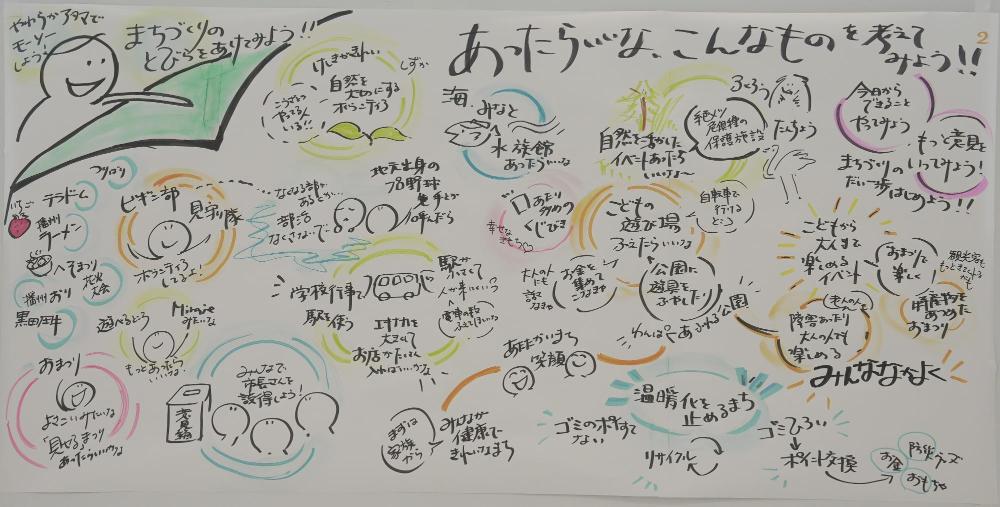 やわらかアタマで
モーソー
しよう!
まちづくりの
とびらをあけてみよう!!
けしきがきれい
しずか
自然を
大切にする
ボランティア
こうどうを
やってる人
いる!!
あったらいいな、こんなものを考えて
みよう!!
2
海
みなと
水族館
あったらいいな
自然を活かした
イベントあったら
いいな〜
絶メツ
危惧種の
保護施設
ふくろう
たんちょう
今日から
できること
やってみよう
もっと意見を
いってみよう!
まちづくりの
だい一歩はじめよう!!
つながり
テラドーム
いちご
ある
播州
ラーメン
へそまつり
播州おり
花火
大会
黒田庄牛
ビギン部
見守り隊
ボランティア
してるよ!
なくなる部が
あるとか…
部活
なくさないで…
地元出身の
プロ野球
選手とか
呼んだら
口あたり
多めの
くじびき
幸せな
きもち
こどもの
遊び場
ふえたらいいな
自転車で
行ける
ところ
公園に
遊具を
ふやしたい
わんぱくあふれる公園
お金を
集めて
こなきゃ
大人の人
にも
話さ
なきゃ
こどもから
大人まで
楽しめる
イベント
おまつりで
楽しく
観光客も
もっときてくれる
かも
特産物を
あつめた
おまつり
老人の人
も
障害あったり
大人の人も
楽しめる
みんななかよく
遊べるところ
Miraie
みたいな
もっとあったら
いいな
学校行事で
駅を使う
駅が
人が来にくい
電車の数
ふえてほしいな
エキナカを
大きくして
お店かたくさん
入ればいいな
おまつり
よさこいみたいな
「見せる」まつり
あったらいいな
意見箱
みんなで
市長さんを
説得しよう!
まずは
家族
から
みんなが
健康で
きれいなまち
あたたかいまち
笑顔
ゴミのポイすて
ない
温暖化を
止めるまち
リサイクル
ゴミひろい
ポイント交換
お金
防災グッズ
おもちゃ